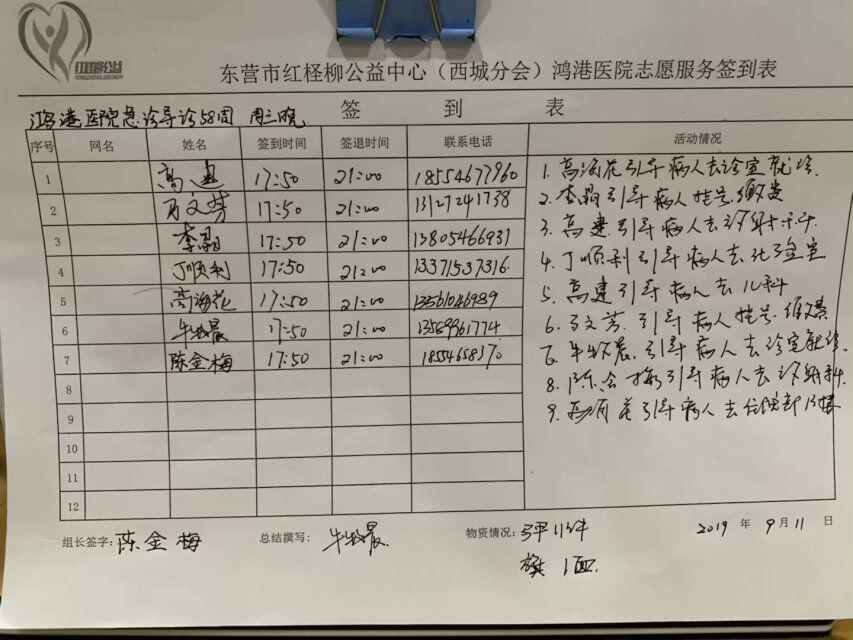 红柽柳公益
HONGCHENGLIUGONGYI
东营市红柽柳公益中心（西城分会）鸿港医院志愿服务签到表
鸿港医院急诊导诊58周 周三晚 签 到 表
序号 网名 姓名 签到时间 签退时间 联系电话 活动情况
1 高建 17:50 21:00 18554677960
2 万文芳 17:50 21:00 13127241738
3 李晶 17:50 21:00 13805466931
4 丁顺利 17:50 21:00 13371537316
5 高海花 17:50 21:00
6 牛牧晨 17:50 21:00 13589961774
7 陈金梅 17:50 21:00
8
9
10
11
12
1. 高海花引导病人去诊室就诊.
2. 李晶引导病人挂号缴费
3. 高建引导病人去
4. 丁顺利引导病人去化验室
5. 高建引导病人去儿科
6. 万文芳引导病人挂号.缴费
7. 牛牧晨.引导病人去诊室就诊.
8. 陈金梅引导病人去
9. 高海花引导病人去住院部
组长签字: 陈金梅 总结撰写: 牛牧晨 物资情况: 2019 年 9月 11 日
旗 1面.